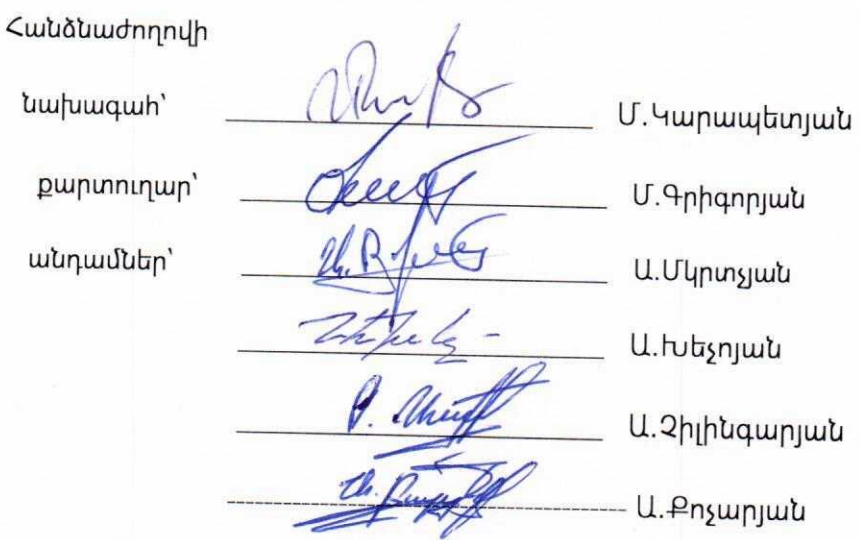 Հանձնաժողովի
նախագահ՝ Մ.Կարապետյան
քարտուղար՝ Մ.Գրիգորյան
անդամներ՝ Ա.Մկրտչյան
Ա.Խեչոյան
Ա.Չիլինգարյան
Ա.Քոչարյան